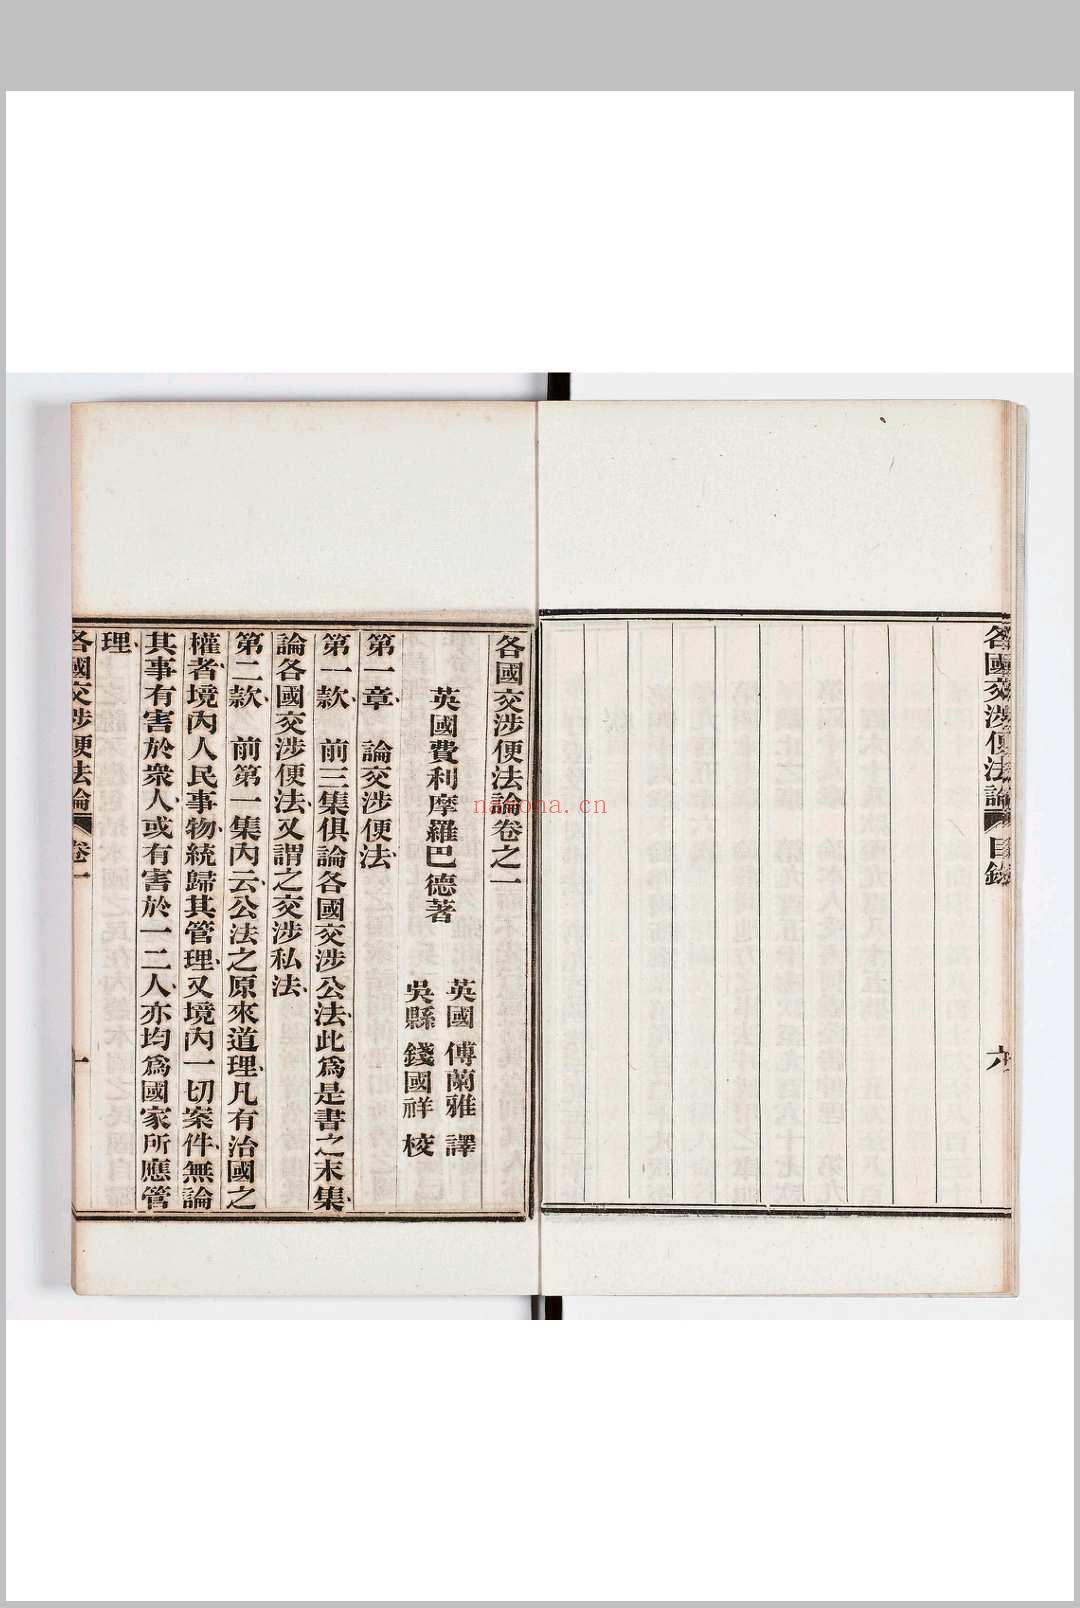 各國交涉便法論 目錄
六
各國交涉便法論卷之一
英國費利摩羅巴德著
英國 傅蘭雅 譯
吳縣 錢國祥 校
第一章 論交涉便法
第一款 前三集俱論各國交涉公法此爲是書之末集
論各國交涉便法又謂之交涉私法
第二款 前第一集內云公法之原來道理凡有治國之
權者境內人民事物統歸其管理又境內一切案件無論
其事有害於衆人或有害於一二人亦均爲國家所應管
理
各國交涉便法論 卷一
一
nayona.cn